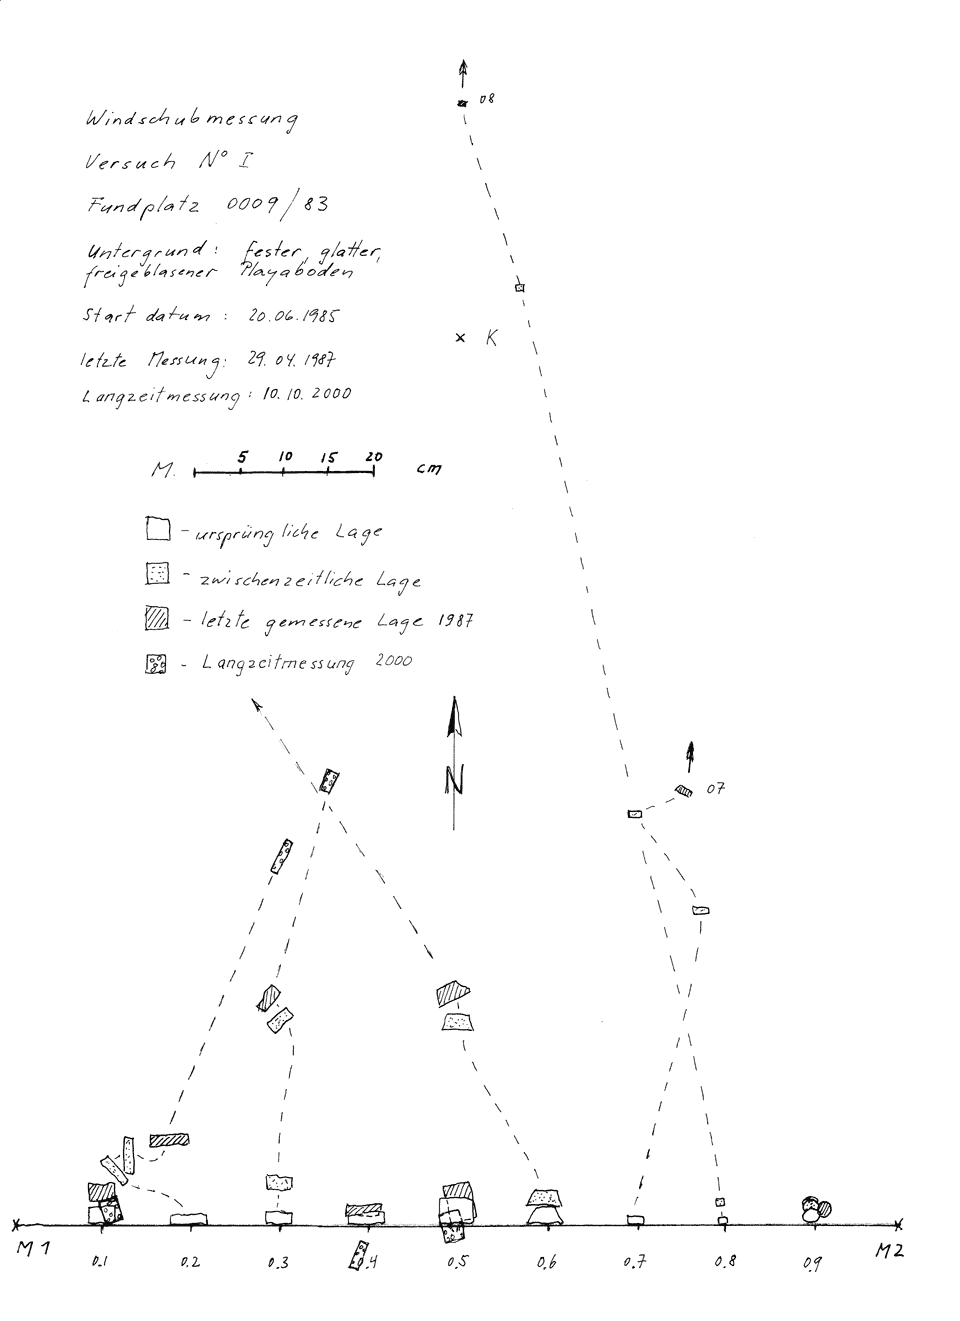 08
Windschubmessung
Versuch N° I
Fundplatz 0009/83
Untergrund: fester, glatter,
freigeblasener Playaboden
Start datum: 20.06.1985
K
letzte Messung: 29.04.1987
Langzeitmessung: 10.10.2000
5 10 15 20
M. cm
- ursprüngliche Lage
- zwischenzeitliche Lage
- letzte gemessene Lage 1987
- Langzeitmessung 2000
N
07
M1 M2
0.1 0.2 0.3 0.4 0.5 0.6 0.7 0.8 0.9